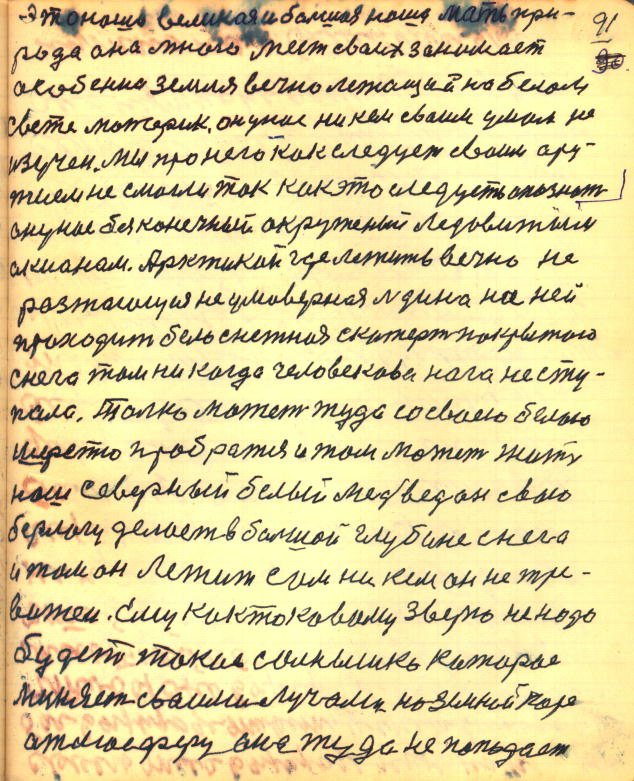 Это наша великая и балшая наша мать при-
рода она много мест сваих занимает
особенна земля вечно лежащий на белом
свете материк. он у нас ни кем своим умом не
изучен. Мы про него как следует своим ору-
жием не смогли так как это следуеть опознат
он у нас безконечный окруженый Ледовитыми
океанам. Арктикой где лежить вечно не
розтающия не имоверная лдина на ней
проходит бельснежная скатерт покрытого
снега там ни когда человекова нага не сту-
пала. Толко может туда со своею белою
шерстю пробратся и там может жить
наш северный белый медведь он свою
берлогу делает в балшой глубине снега
и там он лежит сам ни кем он не тре-
вожен. Ему как таковому зверю не надо
будеть такое солнышко каторае
меняет своими лучами на земной коре
атмосферу она туда не попадает
91